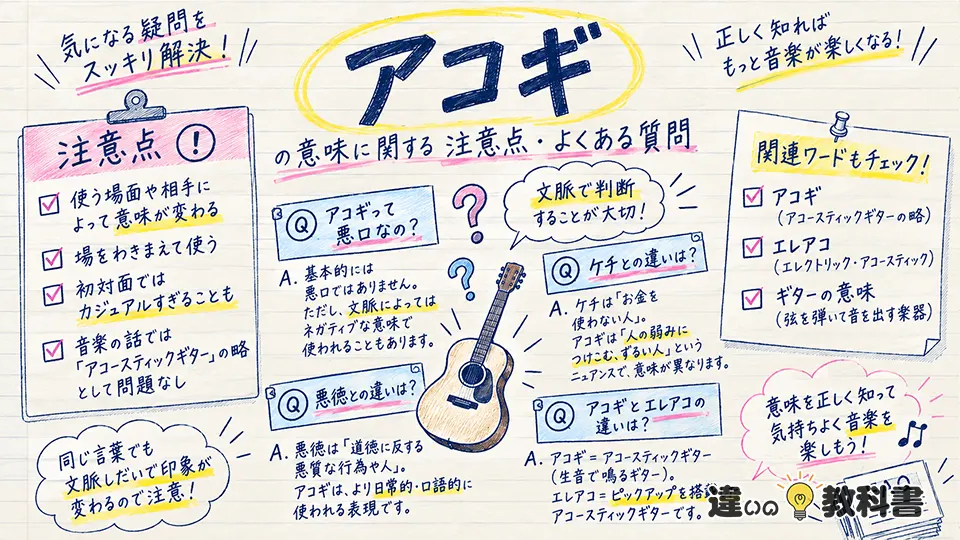 気になる疑問を
スッキリ解決！
アコギ
正しく知れば
もっと音楽が楽しくなる！
の意味に関する注意点・よくある質問
注意点！
使う場面や相手に
よって意味が変わる
場をわきまえて使う
初対面では
カジュアルすぎることも
音楽の話では
「アコースティックギター」の略
として問題なし
同じ言葉でも
文脈しだいで印象が
変わるので注意！
Q アコギって
悪口なの？
A. 基本的には
悪口ではありません。
ただし、文脈によっては
ネガティブな意味で
使われることもあります。
Q 悪徳との違いは？
A. 悪徳は「道徳に反する
悪質な行為や人」。
アコギは、より日常的・口語的に
使われる表現です。
？
？
文脈で判断
することが大切！
Q ケチとの違いは？
A. ケチは「お金を
使わない人」。
アコギは「人の弱みに
つけこむ、ずるい人」という
ニュアンスで、意味が異なります。
Q アコギとエレアコの
違いは？
A. アコギ＝アコースティックギター
（生音で鳴るギター）。
エレアコ＝ピックアップを搭
アコースティックギターです。
関連ワードもチェック！
アコギ
（アコースティックギターの略）
エレアコ
（エレクトリック・アコースティック）
ギターの意味
（弦を弾いて音を出す楽器）
意味を正しく知って
気持ちよく音楽を
楽しもう！
違いの教科書